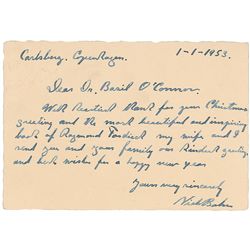 Carlsberg, Copenhagen. 1-1-1953.
Dear Dr. Basil O'Connor
With heartiest thank for your Christmas
greeting and the most beautiful and inspiring
book of Raymond Fosdick my wife and I
send you and your family our kindest greetings
and best wishes for a happy new year
Yours very sincerely
Niels Bohr